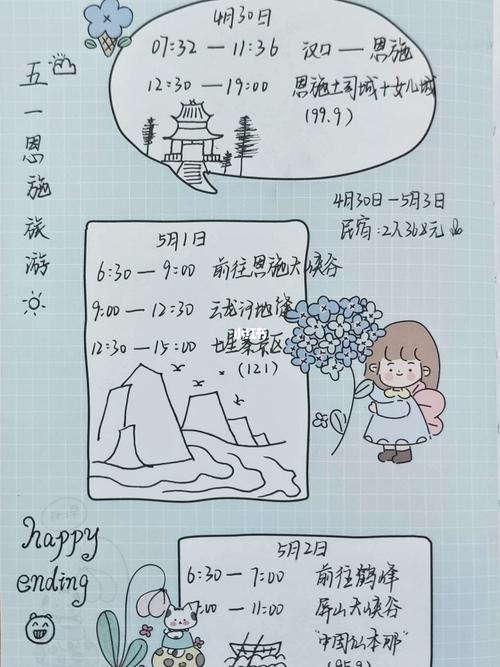 五一恩施旅游
4月30日
07:32 — 11:36 汉口 — 恩施
12:30 — 19:00 恩施土司城+女儿城
(99.9)
4月30日 — 5月3日
民宿:2人368元
5月1日
6:30 — 9:00 前往恩施大峡谷
9:00 — 12:30 云龙河地缝
12:30 — 15:00 七星寨景区
(121)
happy
ending
5月2日
6:30 — 7:00 前往鹤峰
7:00 — 11:00 屏山大峡谷
"中国仙本那"